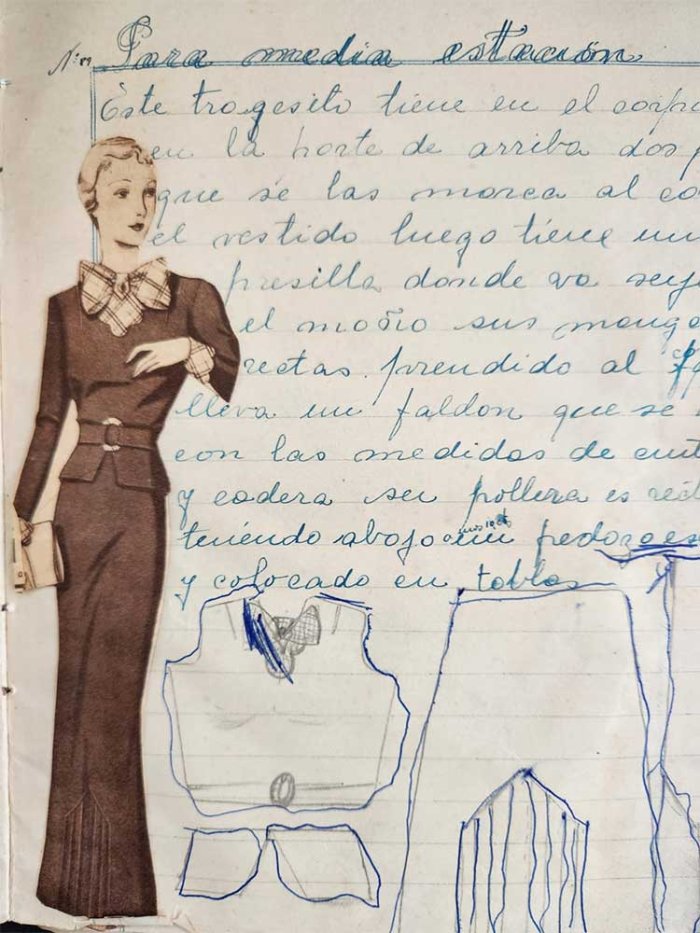 Para media estación
Este trogesito tiene en el corp
en la porte de arriba dos p
que se las morca al co
el vestido luego tiene un
presilla donde va suje
el moño sus manga
rectas prendido al
lleva un faldon que se
con las medidas de cint
y cadera su pollera es rec
teniendo abajo un pedozo es
y colocado en toblas y